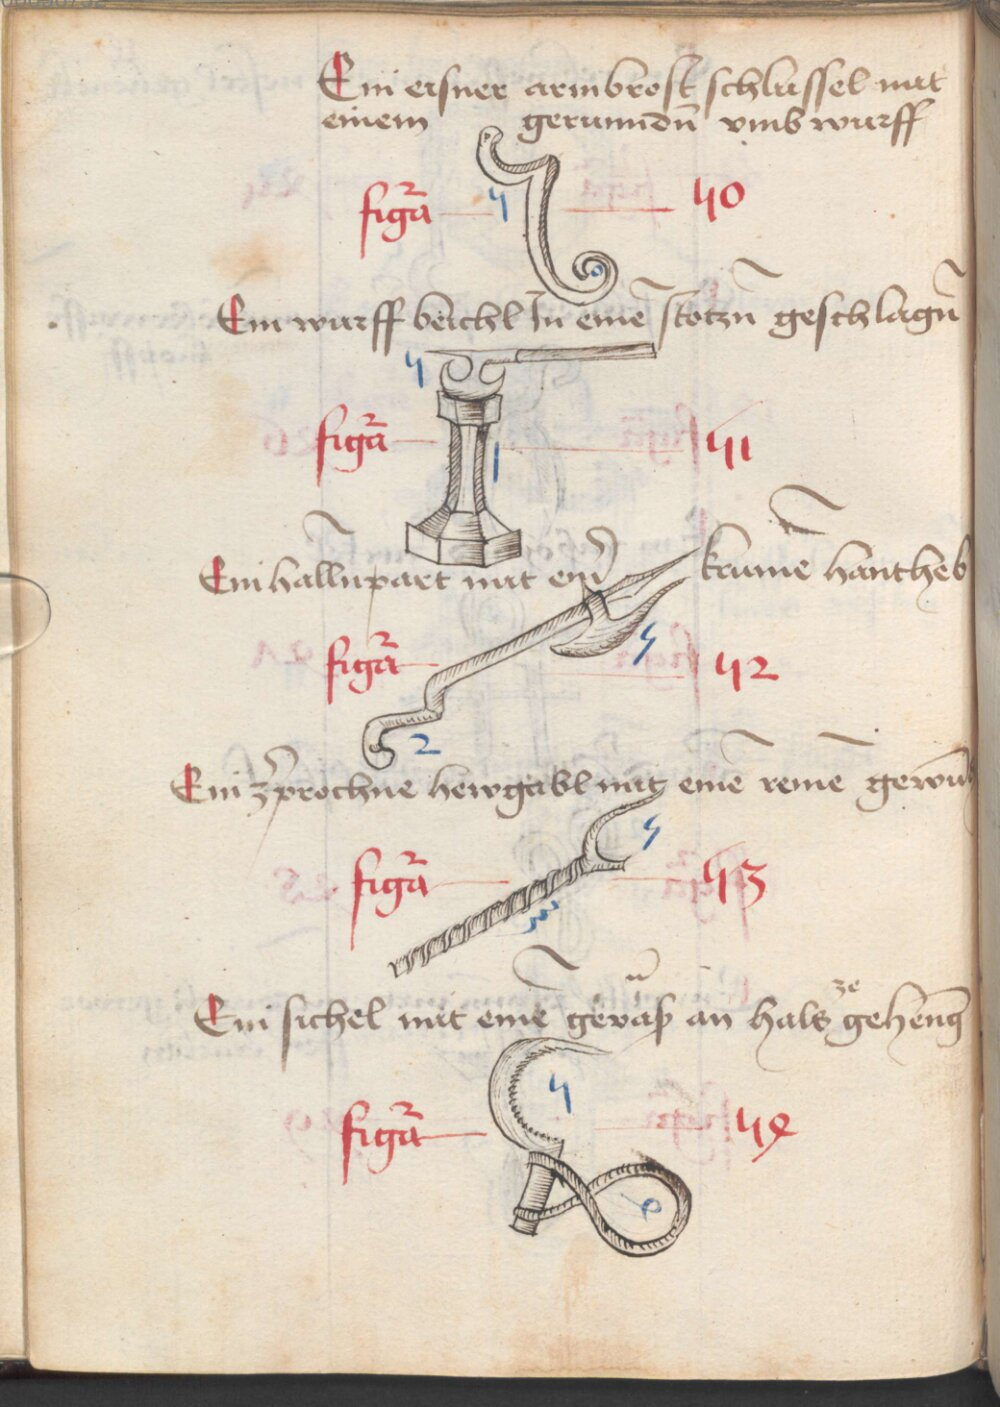 Ein eisner armbrost schlussel mit
einem gerumdn̄ vmbwurff
figa᷑ 4 40
0
Ein wurff beichl In eine᷑ stotzn̄ geschlagn̄
4
figa᷑ 1 41
Ein hallnpart mit ein᷑ krume᷑ hantheb
figa᷑ 4 42
2
Ein zprochne hewgabl mit eine᷑ reme᷑
4
figa᷑ 43
3
Ein sichel mit eine᷑ an hals ze geheng
4
figa᷑ 44